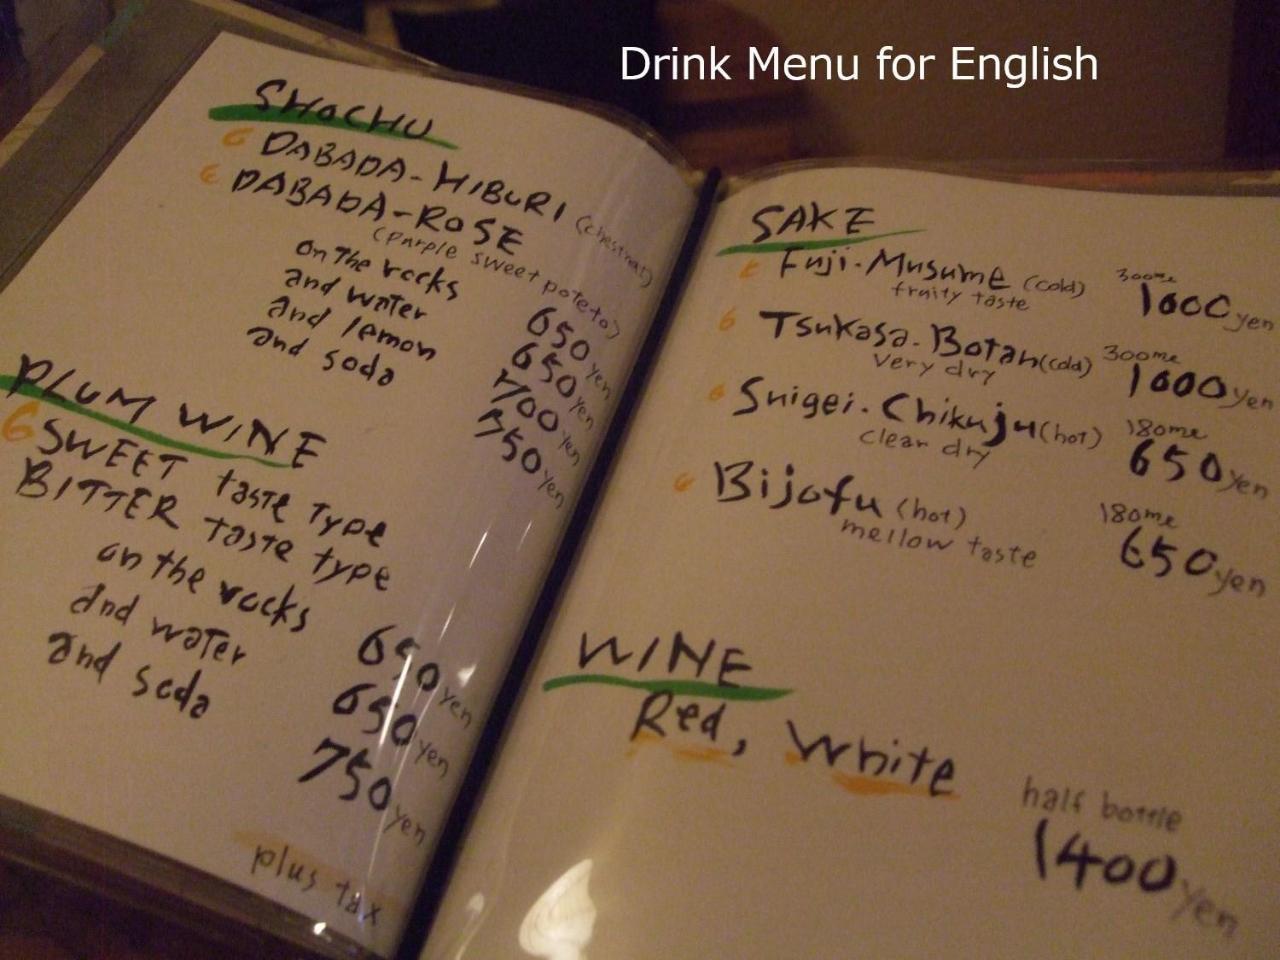 Drink Menu for English
SHOCHU
DABADA-HIBURI (chestnut)
DABADA-ROSE
(purple sweet poteto)
on the rocks 650 yen
and water 650 yen
and lemon 700 yen
and soda 750 yen
PLUM WINE
SWEET taste type
BITTER taste type
on the rocks 650 yen
and water 650 yen
and soda 750 yen
plus tax
SAKE
Fuji-Musume (cold) 300ml 1000 yen
fruity taste
Tsukasa-Botan (cold) 300ml 1000 yen
very dry
Suigei-Chikuju (hot) 180ml 650 yen
clear dry
Bijofu (hot) 180ml 650 yen
mellow taste
WINE
Red, White
half bottle
1400 yen